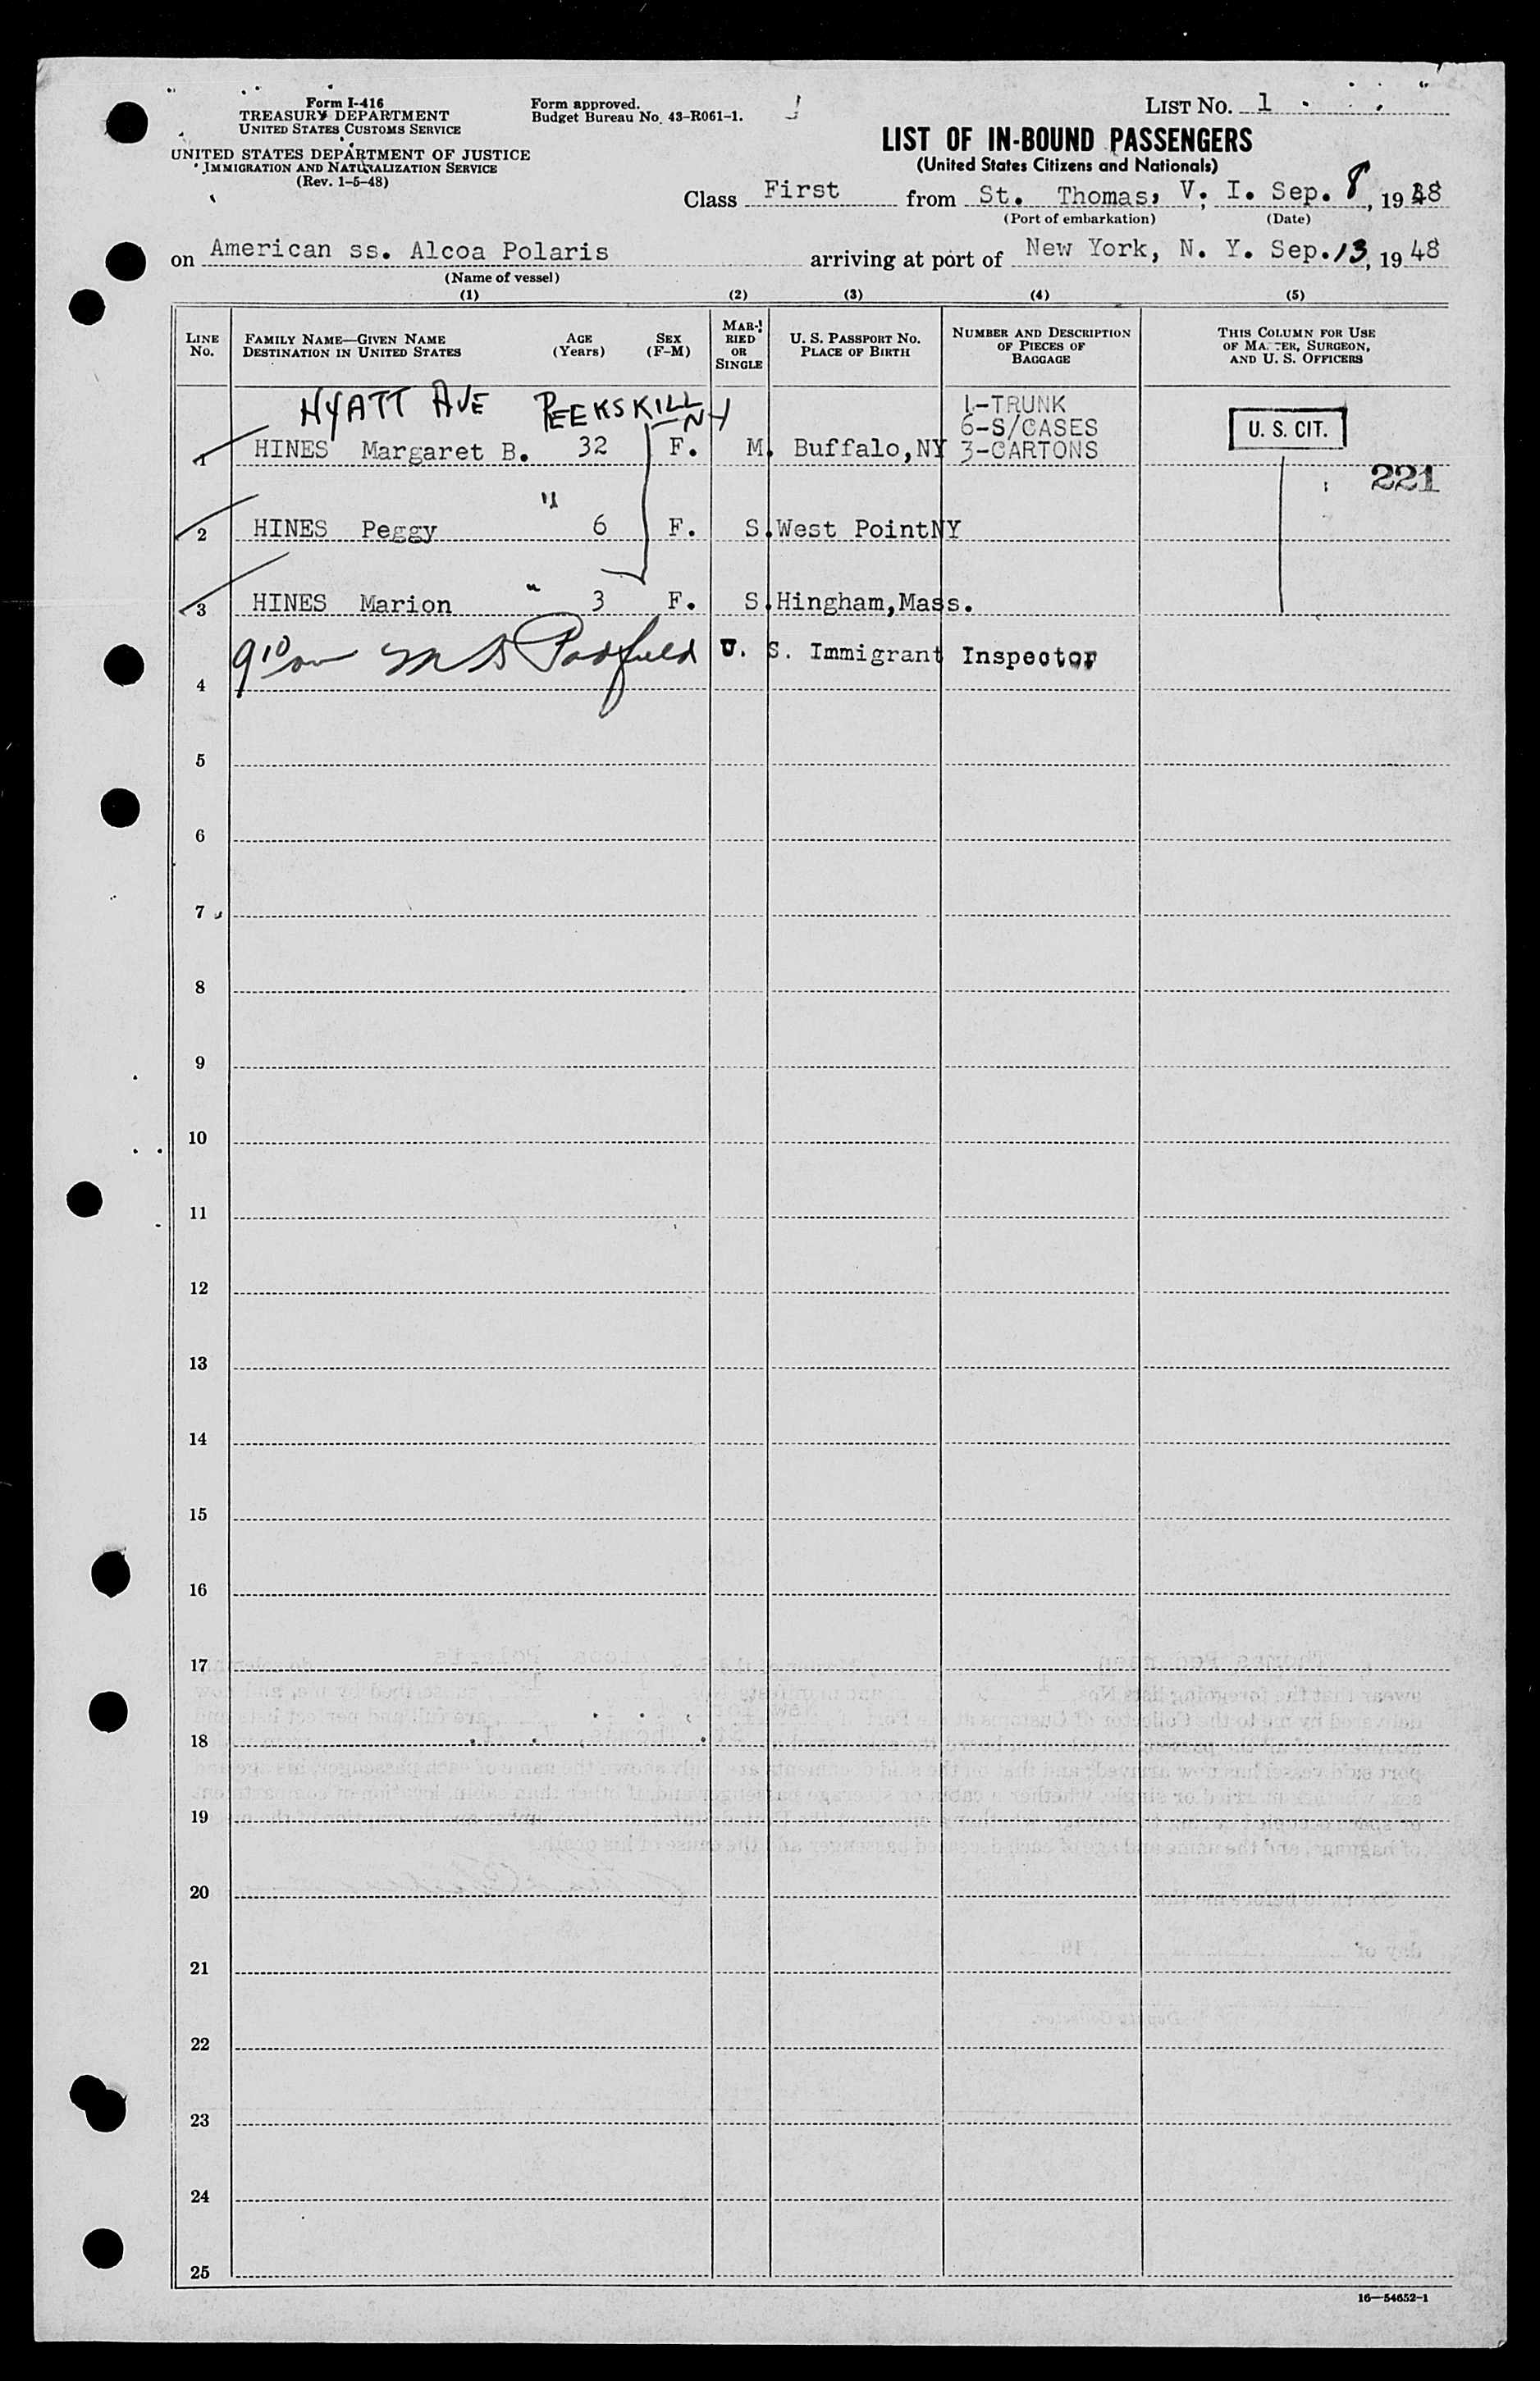 Form I-416
TREASURY DEPARTMENT
UNITED STATES CUSTOMS SERVICE
UNITED STATES DEPARTMENT OF JUSTICE
IMMIGRATION AND NATURALIZATION SERVICE
(Rev. 1-5-48)
Form approved.
Budget Bureau No. 43-R061-1.
LIST No. 1
LIST OF IN-BOUND PASSENGERS
(United States Citizens and Nationals)
Class First from St. Thomas, V. I. Sep. 8, 1948
(Port of embarkation) (Date)
on American ss. Alcoa Polaris arriving at port of New York, N. Y. Sep. 13, 1948
(Name of vessel)
(1) (2) (3) (4) (5)
LINE No. FAMILY NAME—GIVEN NAME DESTINATION IN UNITED STATES AGE (Years) SEX (F-M) MARRIED OR SINGLE U. S. PASSPORT No. PLACE OF BIRTH NUMBER AND DESCRIPTION OF PIECES OF BAGGAGE THIS COLUMN FOR USE OF MASTER, SURGEON, AND U. S. OFFICERS
HYATT AVE PEEKSKILL NY
1-TRUNK
6-S/CASES
U. S. CIT.
1 HINES Margaret B. 32 F. M. Buffalo,NY 3-CARTONS
221
2 HINES Peggy " 6 F. S. West PointNY
3 HINES Marion " 3 F. S. Hingham,Mass.
910 am M Padfield U. S. Immigrant Inspector
4
5
6
7
8
9
10
11
12
13
14
15
16
17
18
19
20
21
22
23
24
25
16—54652-1